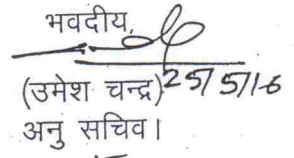 भवदीय,
(उमेश चन्द्र) 25/5/16
अनु सचिव।